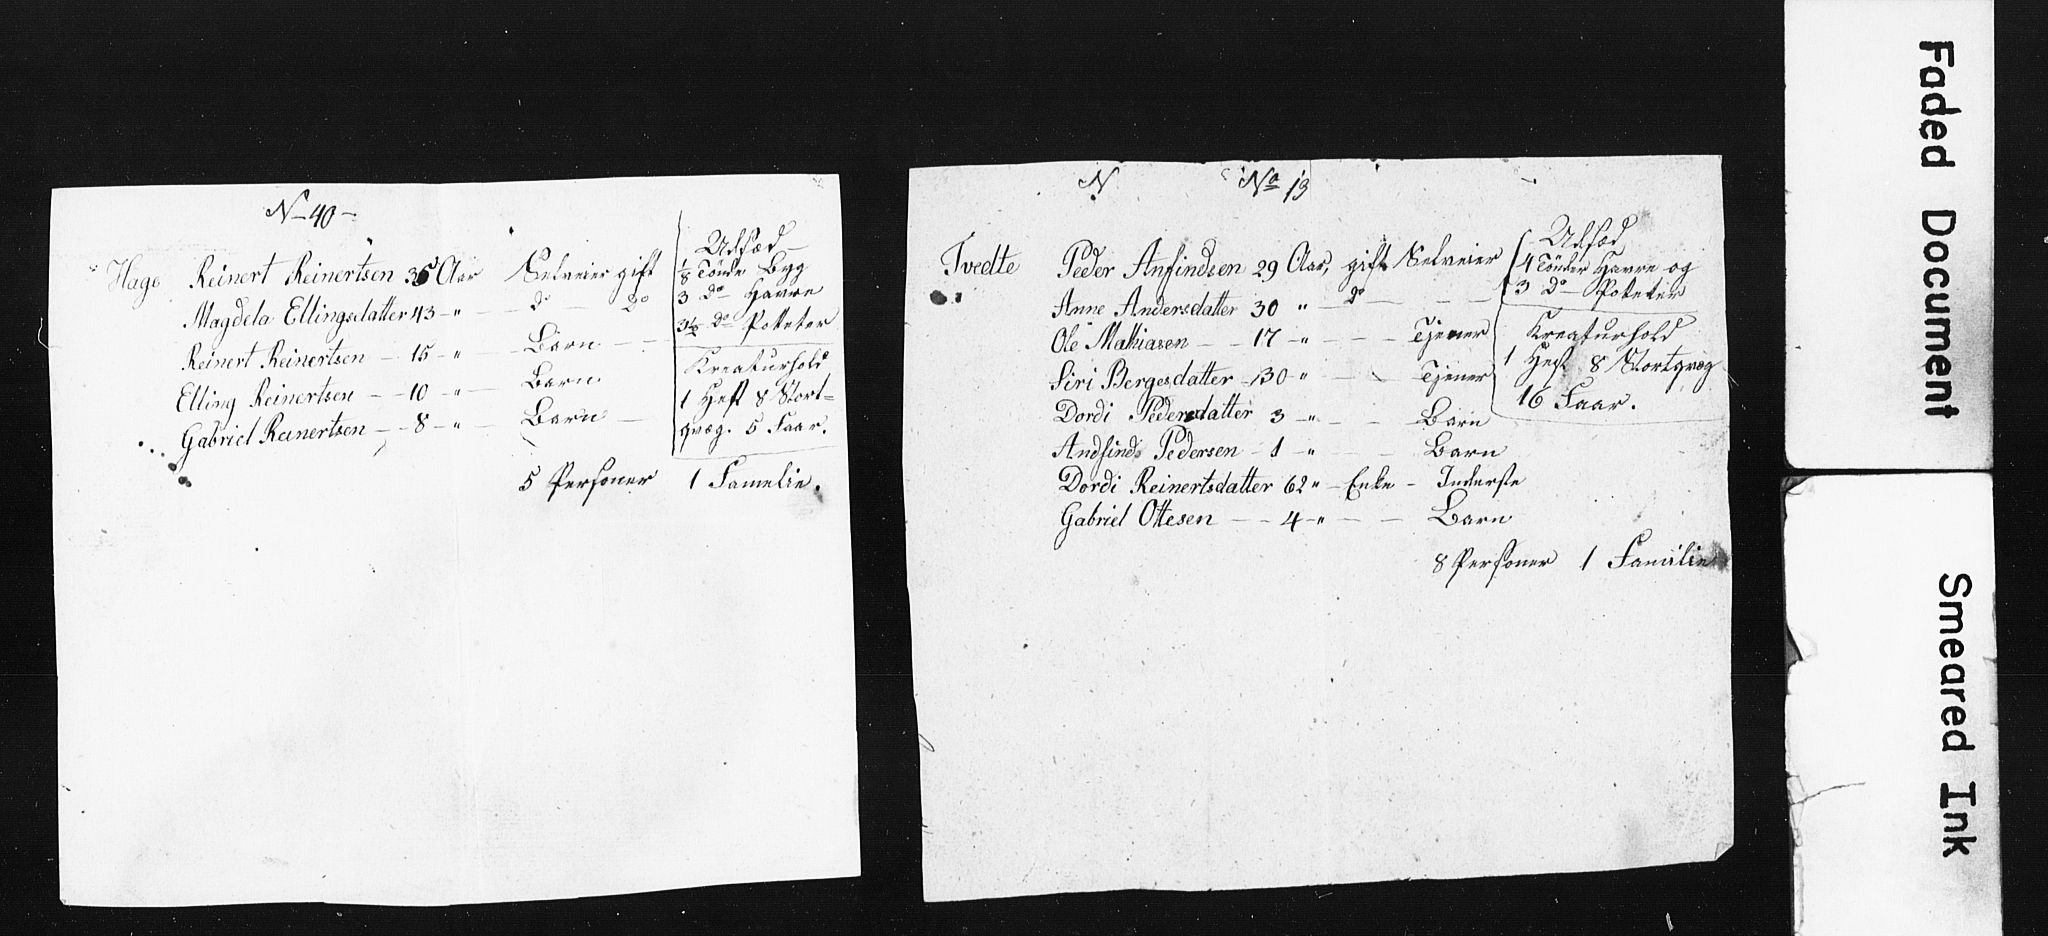 N – 40 –
Hage Reinert Reinertsen 35 Aar Selveier gift
Magdela Ellingsdatter 43 – „ – d° – d°
Reinert Reinertsen – 15 – „ – Barn
Elling Reinertsen – 10 – „ – Barn
Gabriel Reinertsen – 8 – „ – Barn
Udsæd
1/8 Tönde Byg
3 d° Havre
3 1/2 d° Potteter
Kreaturhold
1 Hest 8 Stort=
qvæg. 5 Faar.
5 Personer 1 Famelie.
N No 13
Tvedte Peder Anfindsen 29 Aar, gift Selveier
Anne Andersdatter 30 „ – d° – –
Ole Mathiasen – – 17 – „ – – – Tjener
Siri Bergesdatter – 30 – „ – – Tjener
Dordi Pedersdatter 3 – „ – – Barn
Andfind Pedersen – 1 – „ – – Barn
Dordi Reinertsdatter 62 „ – Enke – Inderste
Gabriel Ottesen – – 4 – „ – – Barn
Udsæd
4 Tönder Havre og
3 d° Poteter
Kreaturhold
1 Hest 8 Stortqvæg
16 Faar.
8 Personer 1 Familie
Faded Document
Smeared Ink